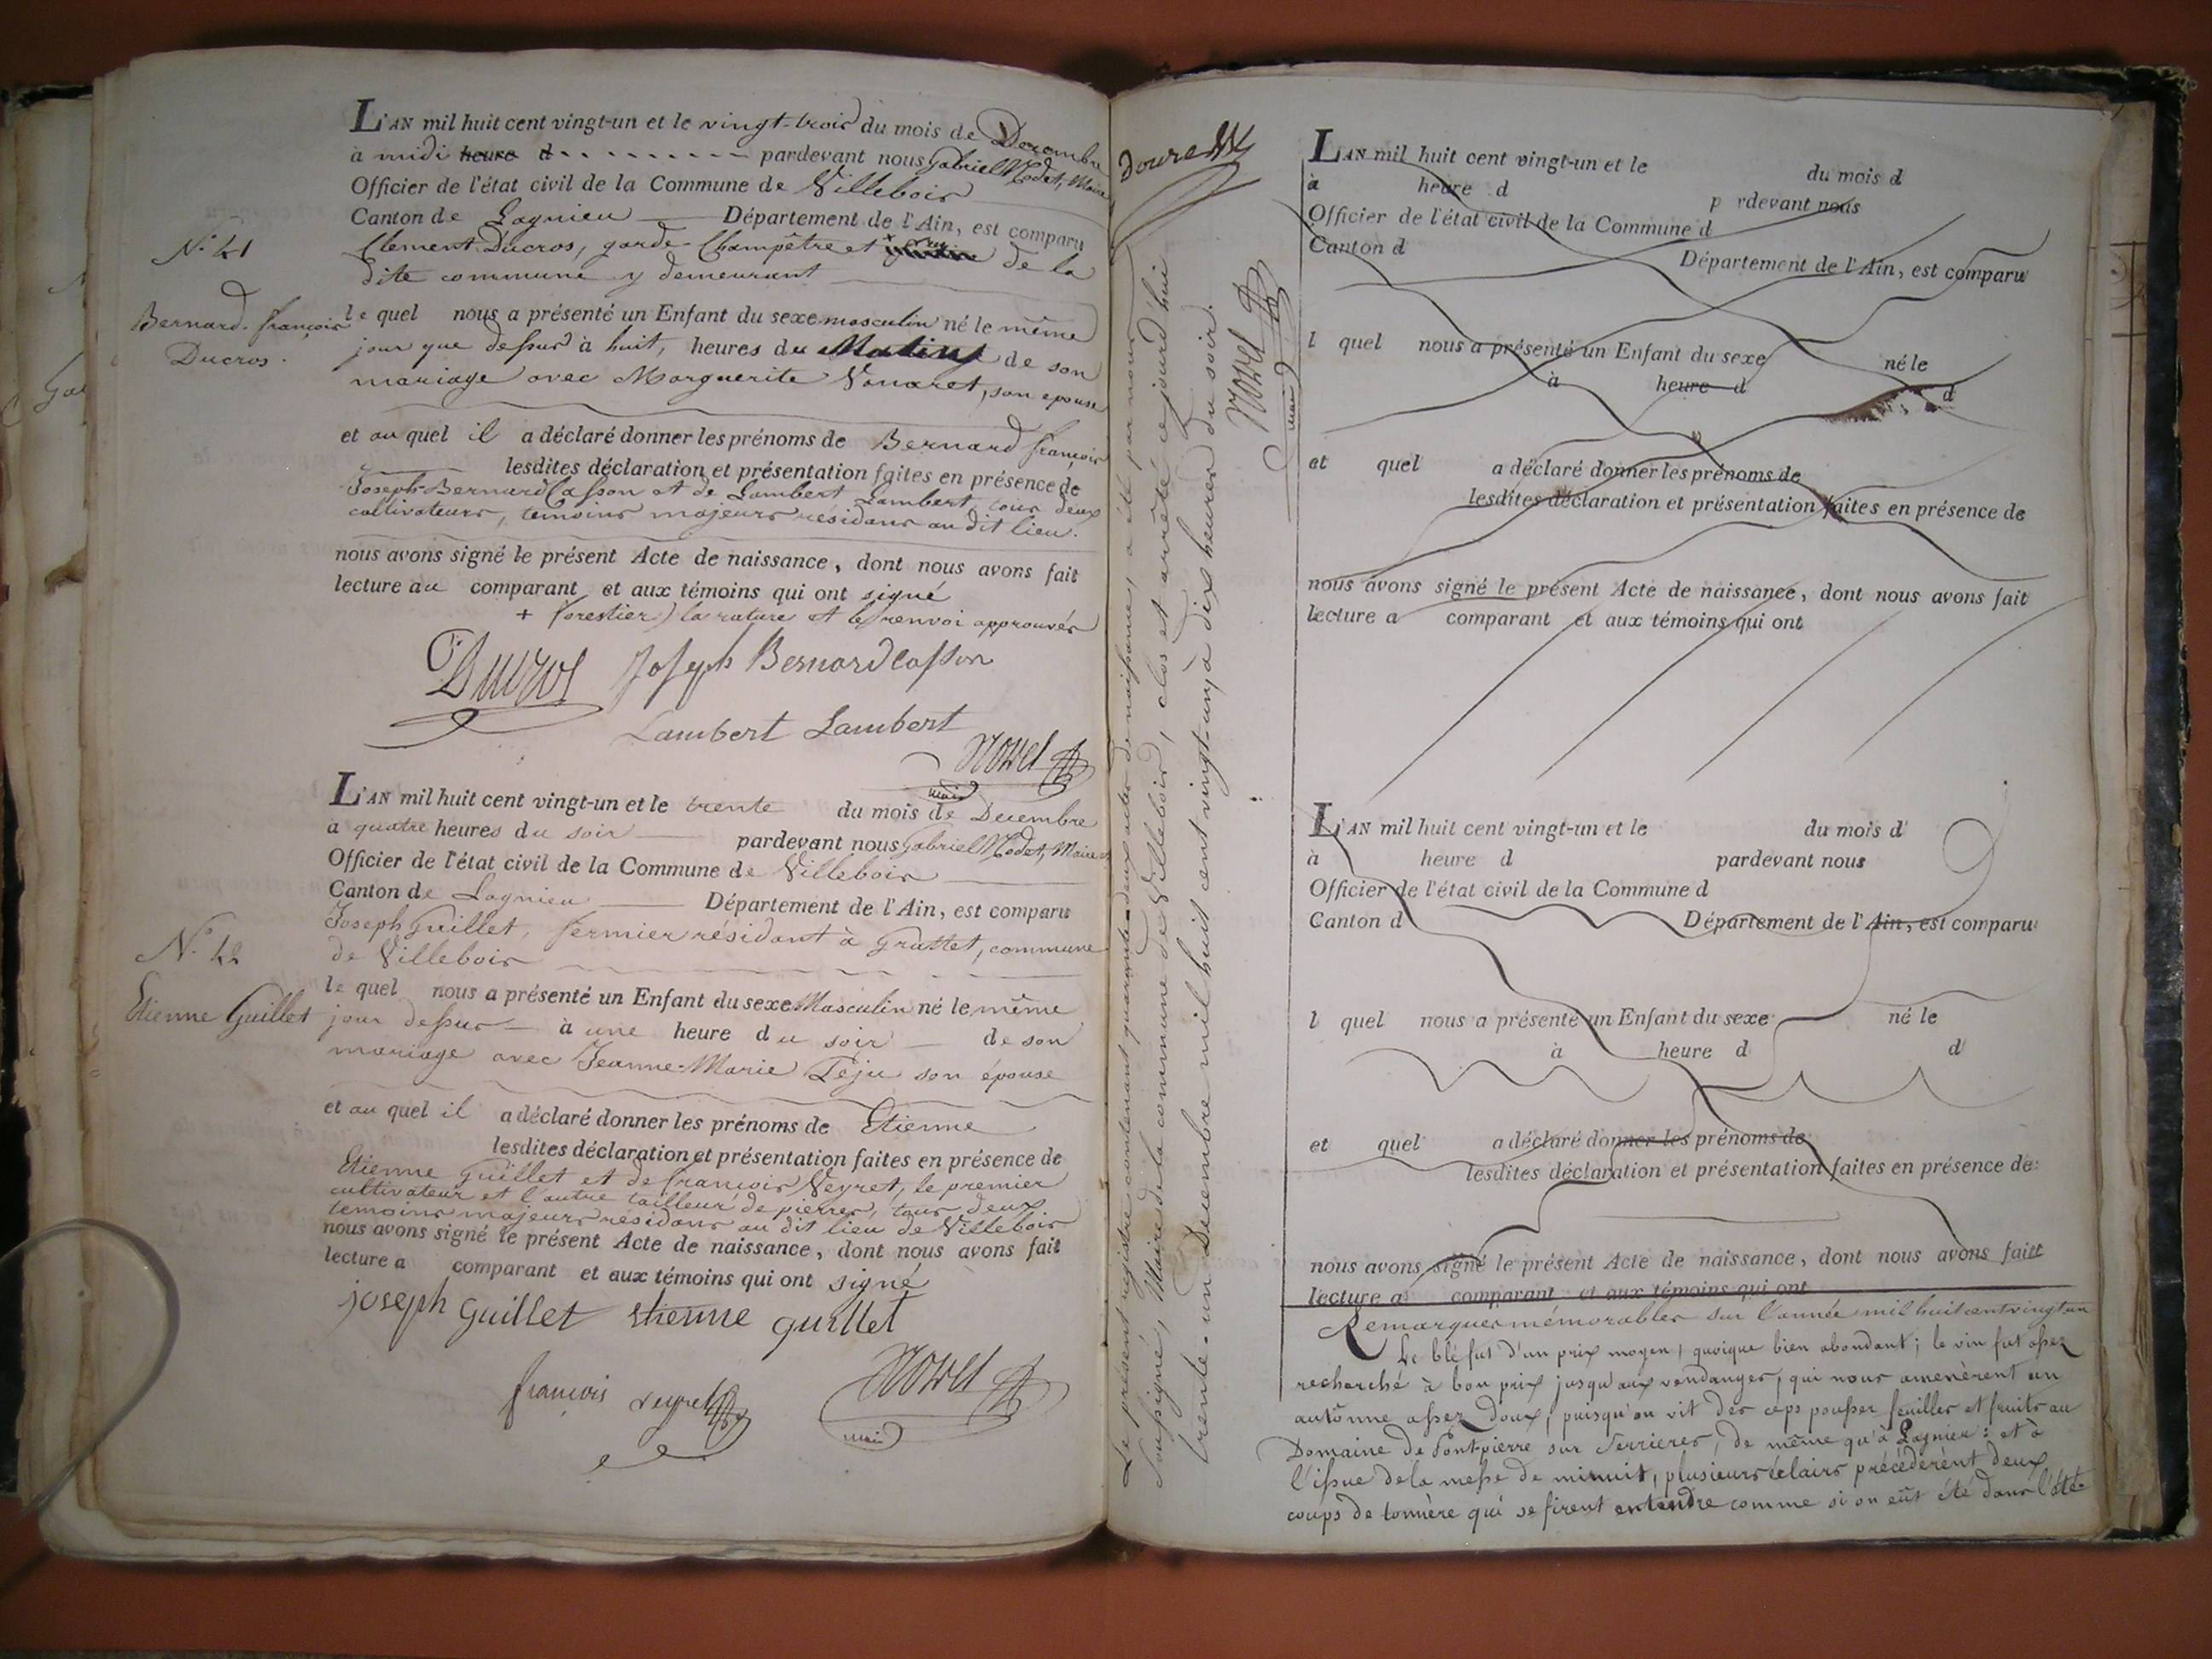 L'AN mil huit cent vingt-un et le vingt-trois du mois de Decembre
à midi heure d pardevant nous Gabriel Nodet, Maire
Officier de l'état civil de la Commune de Villebois
Canton de Lagnieu Département de l'Ain, est comparu
Clement Ducros, garde-Champêtre et + de la
dite commune y demeurant
N.º 41
Bernard-françois
Ducros.
le quel nous a présenté un Enfant du sexe masculin né le même
jour que dessus à huit, heures du Matin de son
mariage avec Marguerite Vouaret, son epouse
et au quel il a déclaré donner les prénoms de Bernard françois
lesdites déclaration et présentation faites en présence de
Joseph-Bernard Casson et de Lambert Lambert, tous deux
cultivateurs, temoins majeurs résidans au dit lieu.
nous avons signé le présent Acte de naissance, dont nous avons fait
lecture au comparant et aux témoins qui ont signé
+ forestier) la rature et le renvoi approuvés
C. Ducros Joseph Bernard Casson
Lambert Lambert
Nodet
maire
L'AN mil huit cent vingt-un et le trente du mois de Decembre
à quatre heures du soir pardevant nous Gabriel Nodet, Maire
Officier de l'état civil de la Commune de Villebois
Canton de Lagnieu Département de l'Ain, est comparu
Joseph Guillet, fermier résidant à Grattet, commune
de Villebois
N.º 42
Etienne Guillet
le quel nous a présenté un Enfant du sexe Masculin né le même
jour dessus à une heure du soir de son
mariage avec Jeanne-Marie Téju son épouse
et au quel il a déclaré donner les prénoms de Etienne
lesdites déclaration et présentation faites en présence de
Etienne Guillet et de françois Veyret, le premier
cultivateur et l'autre tailleur de pierres, tous deux
temoins majeurs résidans au dit lieu de Villebois
nous avons signé le présent Acte de naissance, dont nous avons fait
lecture a comparant et aux témoins qui ont signé
joseph Guillet etienne guillet
françois veyret Nodet
maire
Le présent registre contenant quarante-deux actes de naissance, a été par nous
soussigné, Maire de la commune de Villebois, clos et arrêté cejourd'hui
trente-un Decembre mil huit cent vingt-un, à dix heures du soir.
Nodet
maire
L'AN mil huit cent vingt-un et le du mois d
à heure d p rdevant nous
Officier de l'état civil de la Commune d
Canton d Département de l'Ain, est comparu
l quel nous a présenté un Enfant du sexe né le
à heure d d
et quel a déclaré donner les prénoms de
lesdites déclaration et présentation faites en présence de
nous avons signé le présent Acte de naissance, dont nous avons fait
lecture a comparant et aux témoins qui ont
L'AN mil huit cent vingt-un et le du mois d
à heure d pardevant nous
Officier de l'état civil de la Commune d
Canton d Département de l'Ain, est comparu
l quel nous a présenté un Enfant du sexe né le
à heure d d
et quel a déclaré donner les prénoms de
lesdites déclaration et présentation faites en présence de
nous avons signé le présent Acte de naissance, dont nous avons fait
lecture a comparant et aux témoins qui ont
Remarques mémorables sur l'année mil huit cent vingt un
Le blé fut d'un prix moyen, quoique bien abondant; le vin fut assez
recherché à bon prix jusqu'aux vendanges, qui nous amenèrent un
autônne assez doux, puisqu'on vit des ceps pousser feuilles et fruits au
Domaine de Pont-pierre sur Serrieres, de même qu'à Lagnieu: et à
l'issue de la messe de minuit, plusieurs éclairs précédèrent deux
coups de tonnère qui se firent entendre comme si on eût été dans l'été